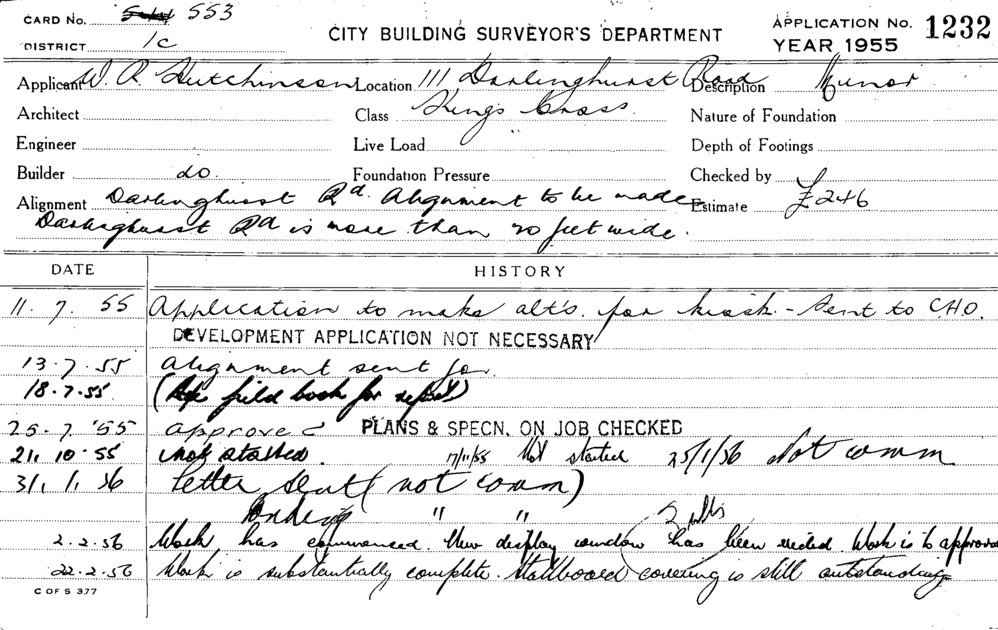 CARD No. 553
DISTRICT 1c
CITY BUILDING SURVEYOR'S DEPARTMENT
APPLICATION No. 1232
YEAR 1955
Applicant W. R. Hutchinson Location 111 Darlinghurst Road Description Minor
Architect Class Kings Cross Nature of Foundation
Engineer Live Load Depth of Footings
Builder do. Foundation Pressure Checked by
Alignment Darlinghurst Rd. Alignment to be made Estimate £246
Darlinghurst Rd is more than 20 feet wide.
DATE HISTORY
11. 7. 55 Application to make alt's. for kiosk. - Sent to C.H.O.
DEVELOPMENT APPLICATION NOT NECESSARY
13.7.55 Alignment sent for.
18.7.55 (See field book for )
25.7.55 Approved PLANS & SPECN. ON JOB CHECKED
21.10.55 Not started. 17/11/55 Not started 25/1/56 Not comm
31.1.56 Letter sent (not comm)
" "
2.2.56 Work has commenced. New display window has been erected. Work is to approval
22.2.56 Work is substantially complete. Stallboard covering is still outstanding
C OF S 377